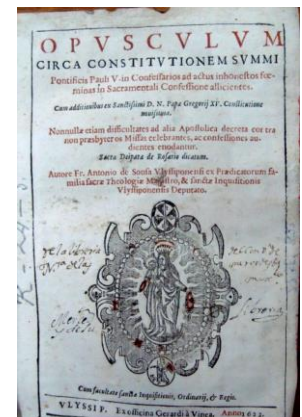 OPVSCVLVM
CIRCA CONSTITVTIONEM SVMMI
Pontificis Pauli V. in Confessarios ad actus inhonestos foe-
minas in Sacramentali Confessione allicientes.
Cum additionibus ex Sanctissimi D. N. Papæ Gregorij XV. Constitutione
Nonnullæ etiam difficultates ad alia Apostolica decreta contra
non presbyteros Missas celebrantes, ac confessiones au-
dientes enodantur.
Sacræ Deiparæ de Rosario dicatum.
Autore Fr. Antonio de Sousa Vlyssiponensi ex Prædicatorum fa-
milia sacræ Theologiæ Magistro, & sanctæ Inquisitionis
Vlyssiponensis Deputato.
Cum facultate sanctæ Inquisitionis, Ordinarij, & Regis.
VLYSSIP. Ex officina Gerardi à Vinea. Anno